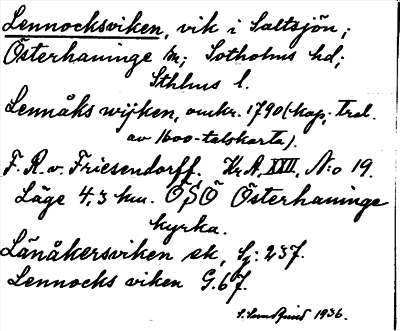 Lennocksviken, vik i Saltsjön;
Österhaninge sn; Sotholms hd;
Sthlms l.
Lennåks wijken, omkr. 1790 (kop. trol.
av 1600-talskarta).
F. R. v. Friesendorff. Kr.A. XXII, N:o 19.
Läge 4,3 km. ÖSÖ Österhaninge
kyrka.
Länåkersviken ek, Sj: 237.
Lennocks viken G. 67.
1936.